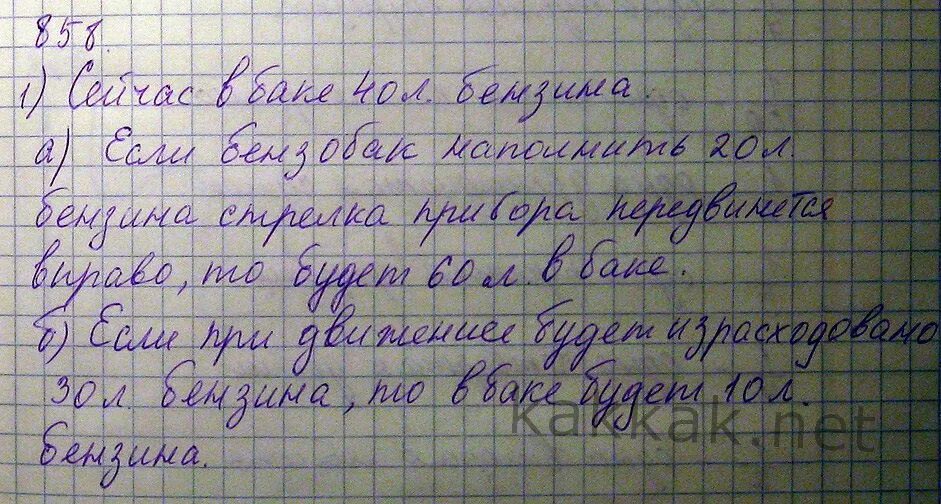 858.
1) Сейчас в баке 40 л. бензина.
а) Если бензобак наполнить 20 л.
бензина стрелка прибора передвинется
вправо, то будет 60 л. в баке.
б) Если при движение будет израсходовано
30 л. бензина, то в баке будет 10 л.
бензина.
kakkak.net